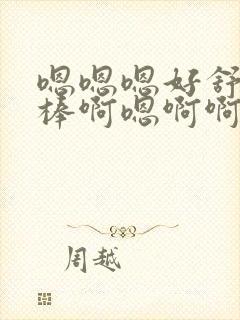 嗯嗯嗯好舒
棒啊嗯啊啊
周越